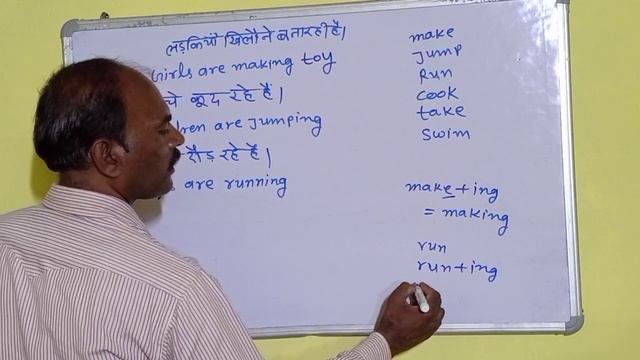 लड़कियाँ खिलौने बना रही हैं।
Girls are making toy
कूद रहे हैं।
are jumping
रहे हैं।
are running
make
Jump
Run
Cook
take
Swim
make+ing
= making
run
run+ing